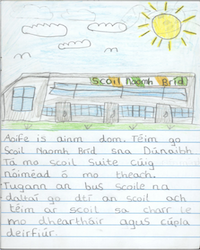 Scoil Naomh Bríd
Aoife is ainm dom. Téim go
Scoil Naomh Bríd sna Dúnaibh.
Tá mo scoil suite cúig
nóiméad ó mo theach.
Tugann an bus scoile na
daltaí go dtí an scoil ach
téim ar scoil sa charr le
mo dheartháir agus cúpla
deirfiúr.